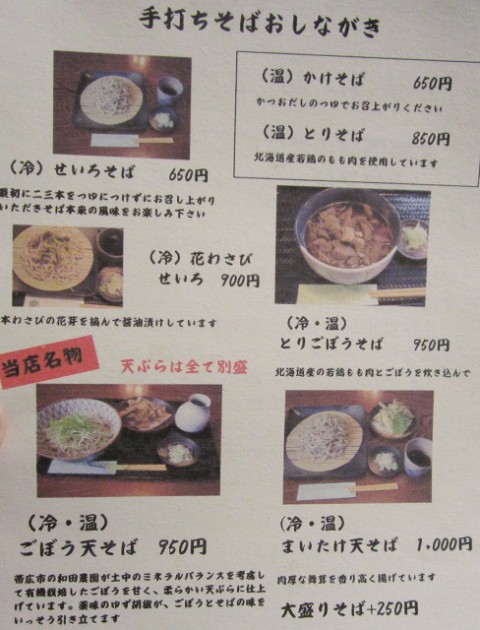 手打ちそばおしながき
(冷)せいろそば 650円
最初に二三本をつゆにつけずにお召し上がり
いただきそば本来の風味をお楽しみ下さい
(温)かけそば 650円
かつおだしのつゆでお召上がりください
(温)とりそば 850円
北海道産若鶏のもも肉を使用しています
(冷)花わさび
せいろ 900円
本わさびの花芽を摘んで醤油漬けしています
(冷・温)
とりごぼうそば 950円
北海道産の若鶏もも肉とごぼうを炊き込んで
当店名物
天ぷらは全て別盛
(冷・温)
ごぼう天そば 950円
帯広市の和田農園が土中のミネラルバランスを考慮し
て有機栽培したごぼうを甘く、柔らかい天ぷらに仕上
げています。薬味のゆず胡椒が、ごぼうとそばの味を
いっそう引き立てます
(冷・温)
まいたけ天そば 1,000円
肉厚な舞茸を香り高く揚げています
大盛りそば+250円